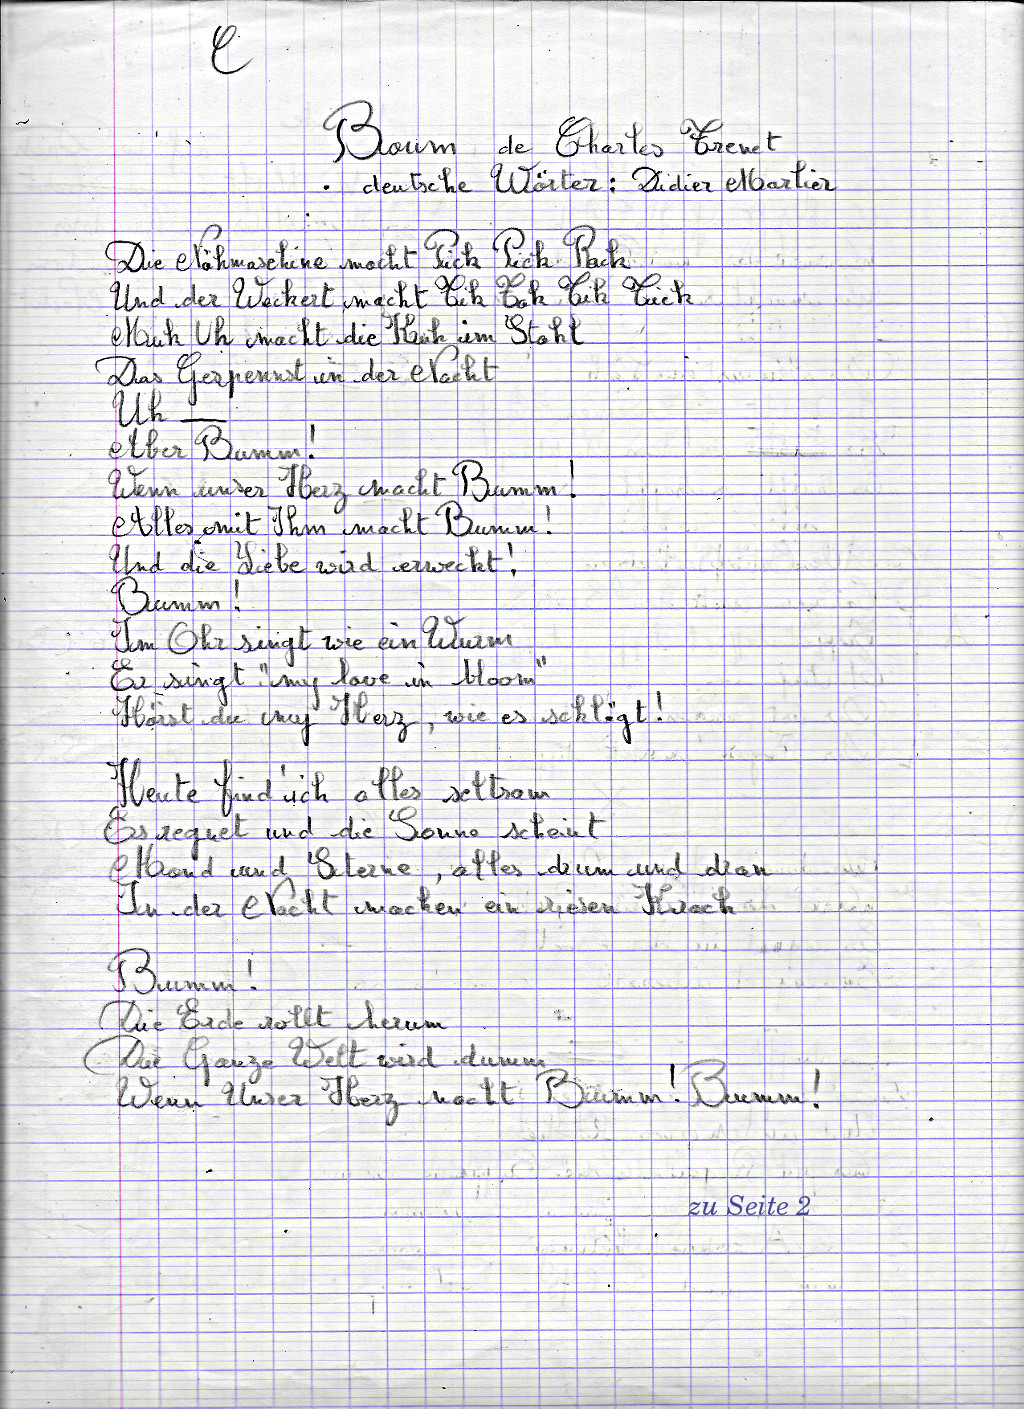 C
Boum de Charles Trenet
. deutsche Wörter : Didier Marlier
Die Nähmaschine macht Pick Pick Pack
Und der Weckert macht Tik Tak Tik Tick
Muh Uh macht die Kuh im Stahl
Das Gerpennst in der Nacht
Uh —
Aber Bumm !
Wenn unser Herz macht Bumm !
Alles mit Ihm macht Bumm !
Und die Liebe wird erweckt !
Bumm !
Im Ohr singt wie ein Wurm
Er singt "my love in bloom"
Hörst du my Herz, wie es schlägt !
Heute find' ich alles seltsam
Es regnet und die Sonne scheint
Mond und Sterne, alles drum und dran
In der Nacht machen ein riesen Krach
Bumm !
Die Erde rollt herum
Die Ganze Welt wird dumm
Wenn Unser Herz macht Bumm ! Bumm !
zu Seite 2